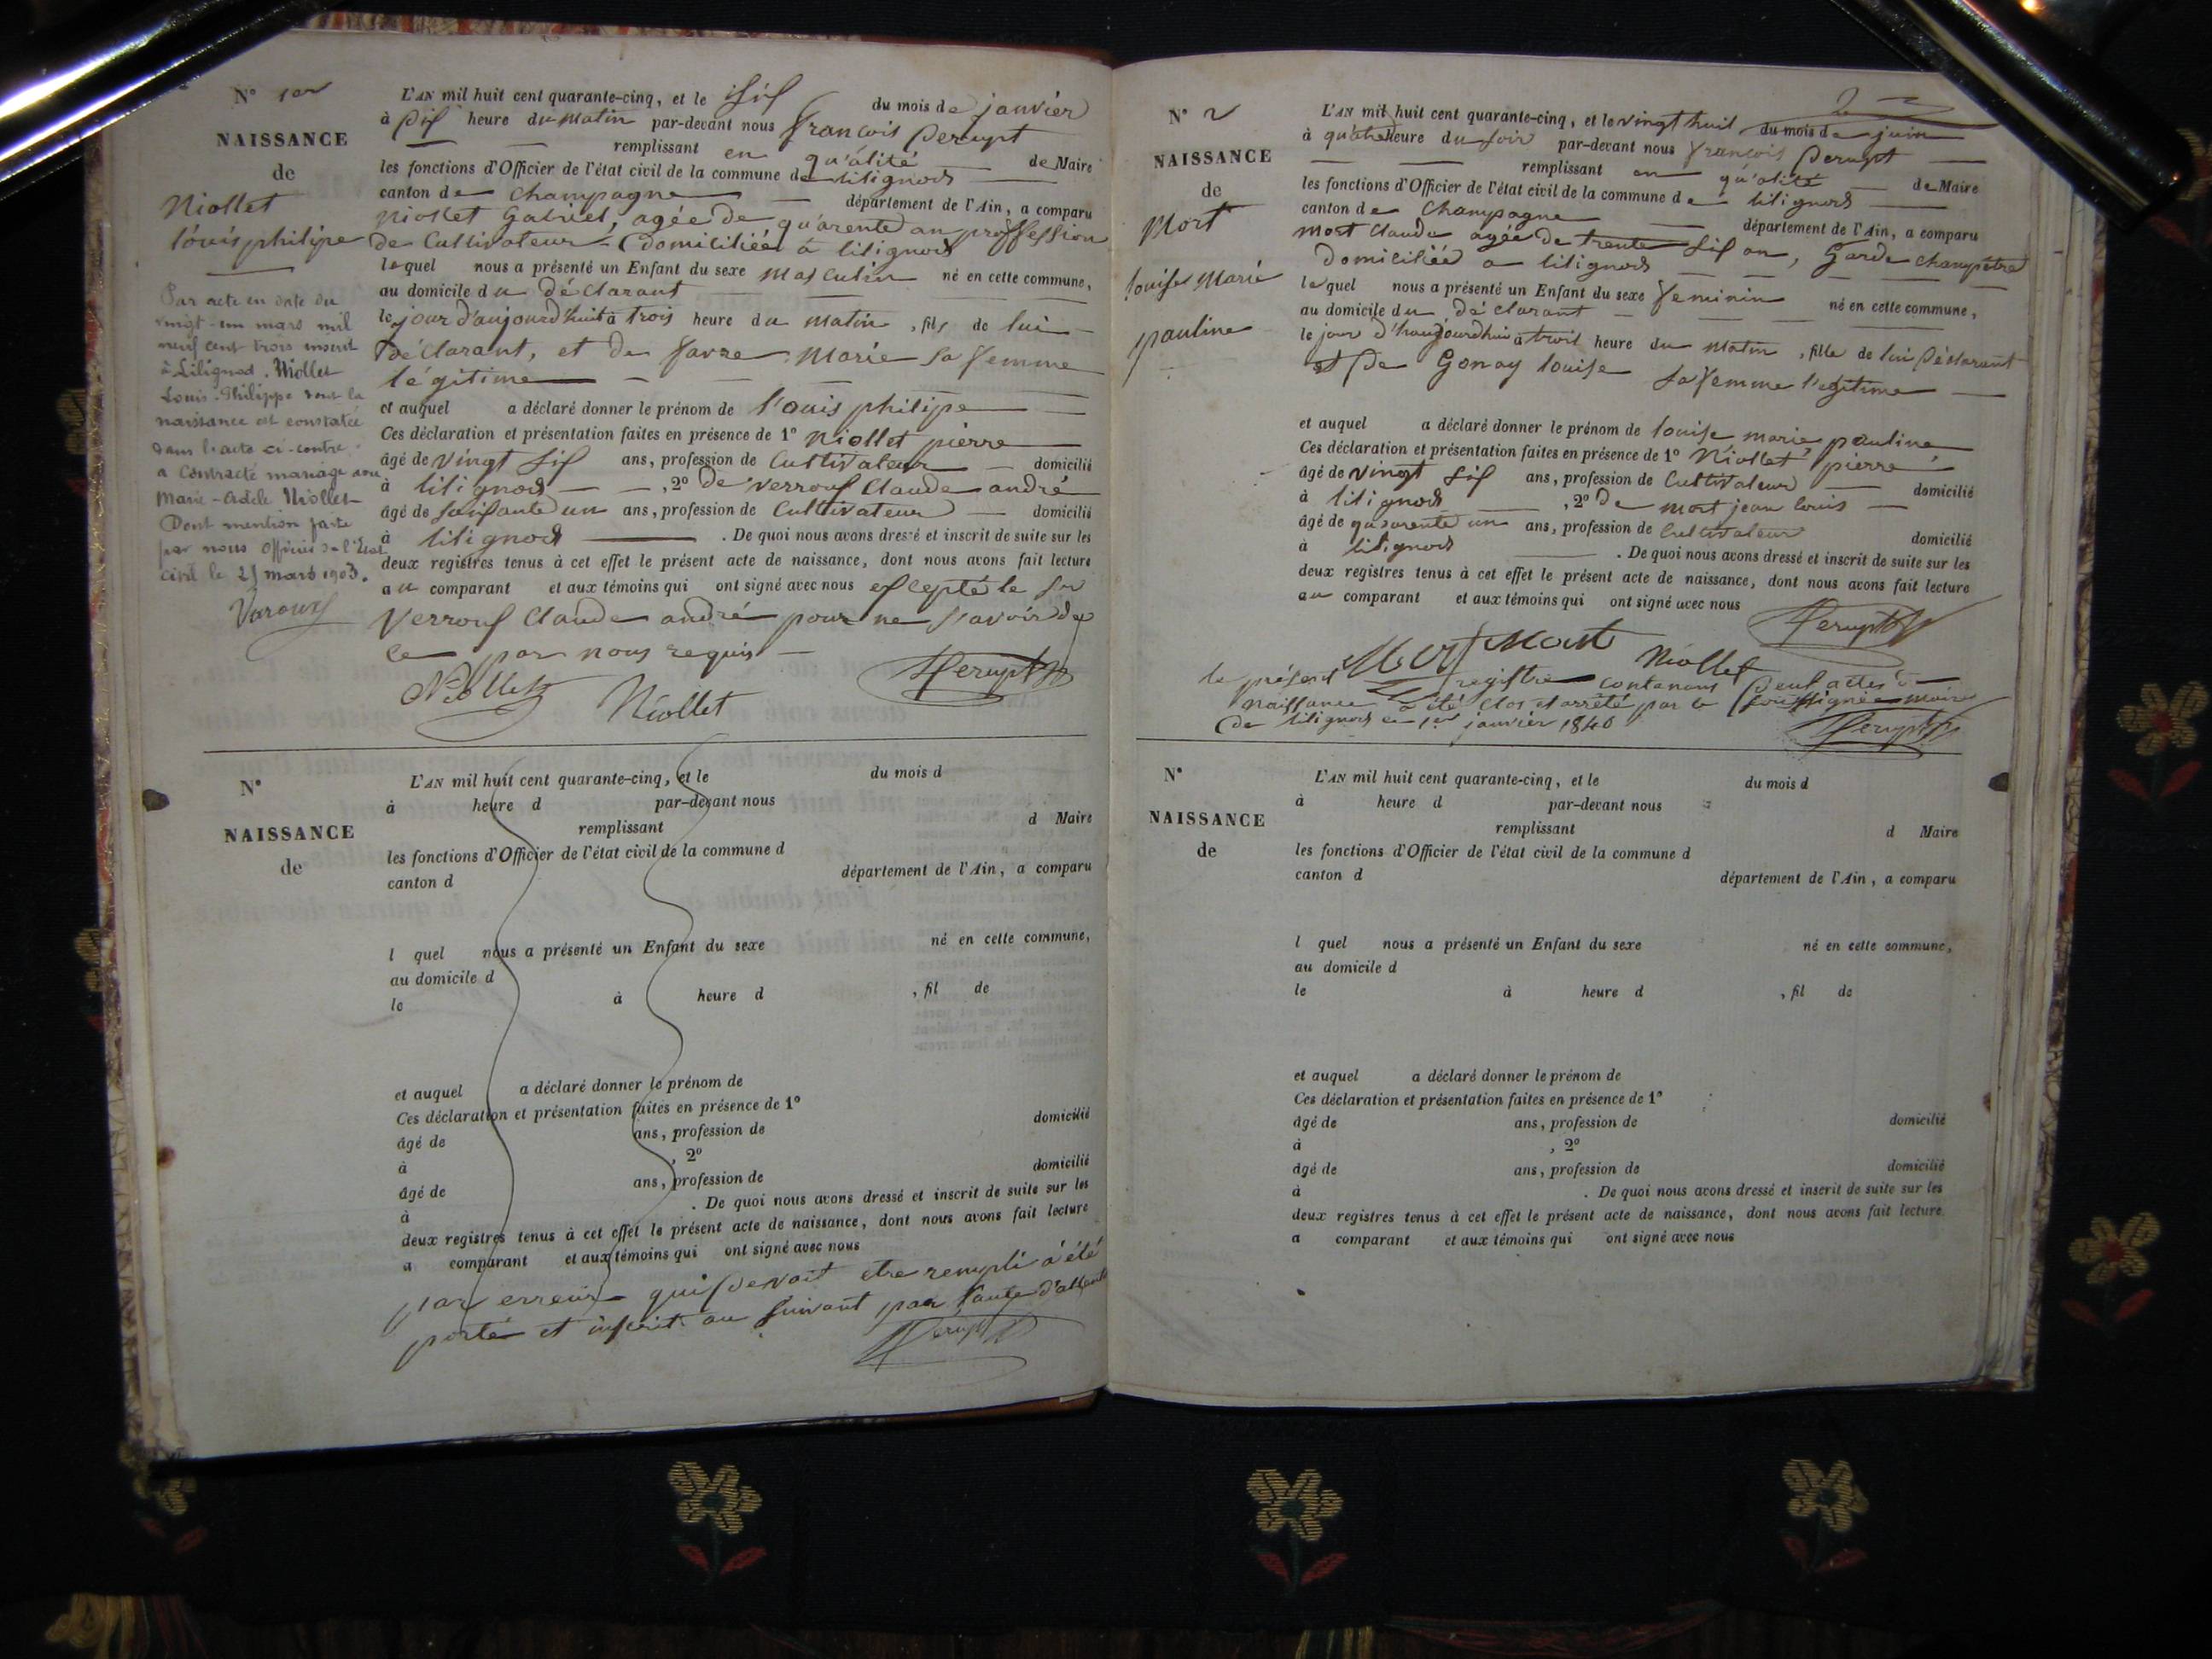 N° 1er
NAISSANCE
de
Niollet
louis philipe
Par acte en date du
vingt-un mars mil
neuf cent trois inscrit
à Lilignod. Niollet
Louis-Philippe dont la
naissance est constatée
dans l'acte ci-contre
a contracté mariage avec
Marie-Adèle Niollet
Dont mention faite
par nous officier de l'Etat
civil le 21 mars 1903.
L'AN mil huit cent quarante-cinq, et le sif du mois de janvier
à dif heure du matin par-devant nous francois Perupt
remplissant en qu'alité de Maire
les fonctions d'Officier de l'état civil de la commune de lilignod
canton de Champagne département de l'Ain, a comparu
Niollet Gabriel, agée de quarente an proffession
de Cultivateur domiciliée à lilignod
lequel nous a présenté un Enfant du sexe masculin né en cette commune,
au domicile du déclarant
le jour d'aujourd'huit à trois heure du matin, fils de lui
déclarant, et de favre Marie sa femme
légitime
et auquel a déclaré donner le prénom de louis philipe
Ces déclaration et présentation faites en présence de 1° Niollet pierre
âgé de vingt sif ans, profession de Cultivateur domicilié
à lilignod, 2° de verrouf Claude andré
âgé de soisante un ans, profession de Cultivateur domicilié
à lilignod. De quoi nous avons dressé et inscrit de suite sur les
deux registres tenus à cet effet le présent acte de naissance, dont nous avons fait lecture
au comparant et aux témoins qui ont signé avec nous efcepté le sr
Verrouf Claude andré pour ne savoir de
ce par nous requis
Niollet Niollet Perupt
N°
NAISSANCE
de
L'AN mil huit cent quarante-cinq, et le du mois d
à heure d par-devant nous
remplissant d Maire
les fonctions d'Officier de l'état civil de la commune d
canton d département de l'Ain, a comparu
l quel nous a présenté un Enfant du sexe né en cette commune,
au domicile d
le à heure d , fil de
et auquel a déclaré donner le prénom de
Ces déclaration et présentation faites en présence de 1°
âgé de ans, profession de domicilié
à , 2°
âgé de ans, profession de domicilié
à . De quoi nous avons dressé et inscrit de suite sur les
deux registres tenus à cet effet le présent acte de naissance, dont nous avons fait lecture
a comparant et aux témoins qui ont signé avec nous
par erreur qui devoit etre rempli a été
porté et inscrit au suivant par faute d'attention
Perupt
2
N° 2
NAISSANCE
de
Mort
louise Marie
pauline
L'AN mil huit cent quarante-cinq, et le vingt huil du mois de juin
à quatre heure du soir par-devant nous francois Perupt
remplissant en qu'alité de Maire
les fonctions d'Officier de l'état civil de la commune de lilignod
canton de Champagne département de l'Ain, a comparu
mort Claude agée de trente sif an, Garde champêtre
domiciliée a lilignod
lequel nous a présenté un Enfant du sexe feminin né en cette commune,
au domicile du déclarant
le jour d'haujourdhui à troit heure du matin, fille de lui déclarant
et de Gonay louise sa femme l'egitime
et auquel a déclaré donner le prénom de louise marie pauline
Ces déclaration et présentation faites en présence de 1° Niollet pierre
âgé de vingt sif ans, profession de Cultivateur domicilié
à lilignod, 2° de mort jean louis
âgé de quarente un ans, profession de Cultivateur domicilié
à lilignod. De quoi nous avons dressé et inscrit de suite sur les
deux registres tenus à cet effet le présent acte de naissance, dont nous avons fait lecture
au comparant et aux témoins qui ont signé avec nous
Perupt
Mort Mort Niollet
le présent registre contenant deuf actes de
naissance a été clos et arrété par le soussignée maire
de lilignod ce 1er janvier 1846
Perupt
N°
NAISSANCE
de
L'AN mil huit cent quarante-cinq, et le du mois d
à heure d par-devant nous
remplissant d Maire
les fonctions d'Officier de l'état civil de la commune d
canton d département de l'Ain, a comparu
l quel nous a présenté un Enfant du sexe né en cette commune,
au domicile d
le à heure d , fil de
et auquel a déclaré donner le prénom de
Ces déclaration et présentation faites en présence de 1°
âgé de ans, profession de domicilié
à , 2°
âgé de ans, profession de domicilié
à . De quoi nous avons dressé et inscrit de suite sur les
deux registres tenus à cet effet le présent acte de naissance, dont nous avons fait lecture
a comparant et aux témoins qui ont signé avec nous